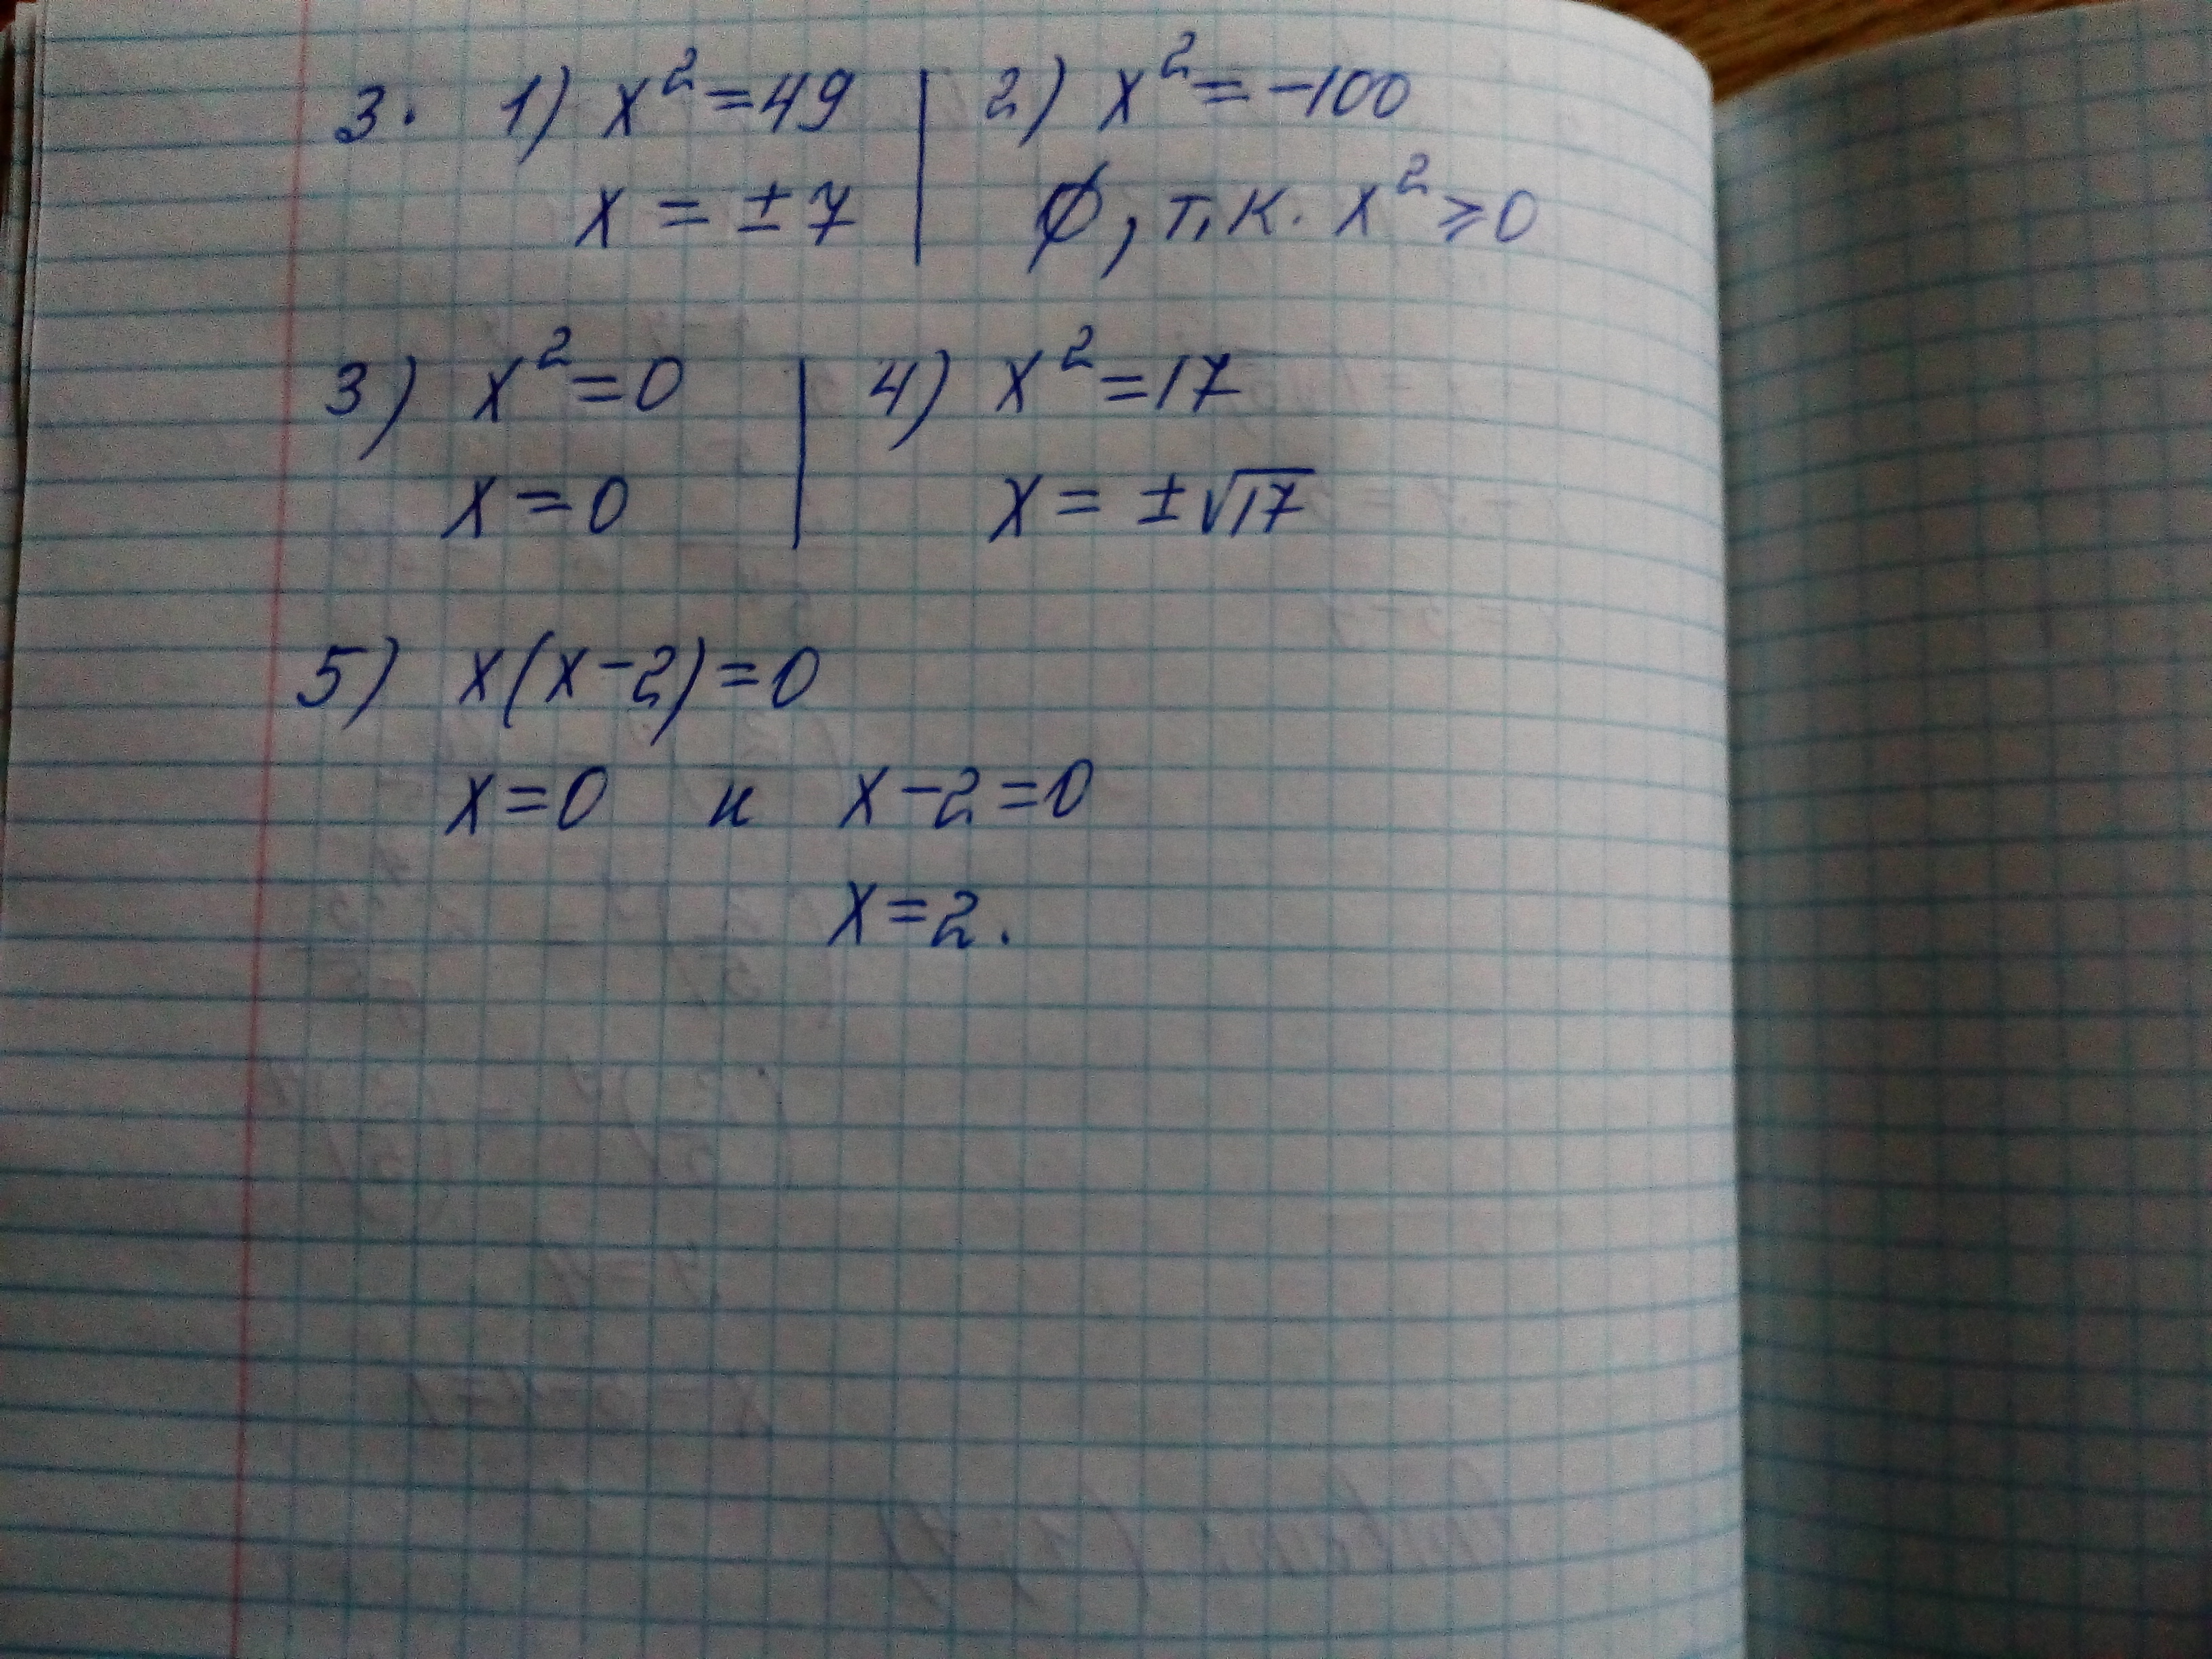 3. 1) x²=49 | 2) x²=-100
x = ±7 | ∅, т.к. x²⩾0
3) x²=0 | 4) x²=17
x=0 | x= ±√17
5) x(x-2)=0
x=0 и x-2=0
x=2.